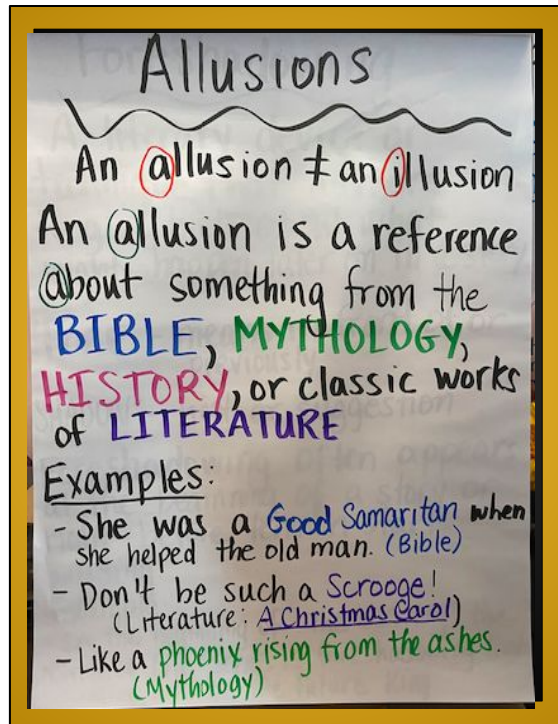 Allusions
An allusion ≠ an illusion
An allusion is a reference
about something from the
BIBLE, MYTHOLOGY,
HISTORY, or classic works
of LITERATURE
Examples:
- She was a Good Samaritan when
she helped the old man. (Bible)
- Don't be such a Scrooge!
(Literature: A Christmas Carol)
- Like a phoenix rising from the ashes.
(Mythology)